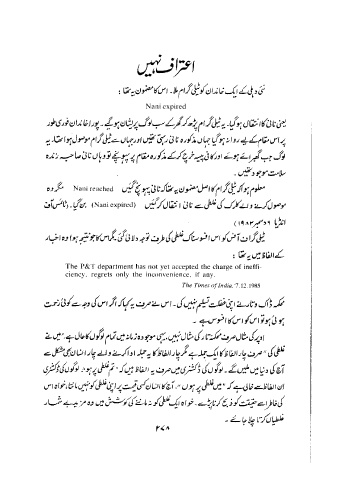 اعتراف نہیں
نئی دہلی کے ایک خاندان کو ٹیلی گرام ملا۔ اس کا مضمون یہ تھا :
Nani expired
یعنی نانی کا انتقال ہو گیا۔ یہ ٹیلی گرام پڑھ کر گھر کے سب لوگ پریشان ہو گئے۔ پورا خاندان فوری طور
پر اس مقام کے لیے روانہ ہو گیا جہاں مذکورہ نانی رہتی تھیں اور جہاں سے ٹیلی گرام موصول ہوا تھا۔ یہ
لوگ جب گھبرائے ہوئے اور کافی پیسہ خرچ کر کے مذکورہ مقام پر پہونچے تو وہاں نانی صاحبہ زندہ
سلامت موجود تھیں۔
معلوم ہوا کہ ٹیلی گرام کا اصل مضمون یہ تھا کہ نانی پہونچ گئیں Nani reached مگر وہ
موصول کرنے والے کلرک کی غلطی سے نانی انتقال کر گئیں (Nani expired) بن گیا۔ (ٹائمس آف
انڈیا ۶ دسمبر ۱۹۸۳)
ٹیلی گراف آفس کو اس افسوسناک غلطی کی طرف توجہ دلائی گئی۔ مگر اس کا جو نتیجہ ہوا وہ اخبار
کے الفاظ میں یہ تھا :
The P&T department has not yet accepted the charge of ineffi-
ciency, regrets only the inconvenience, if any.
The Times of India, 7.12.1985
محکمہ ڈاک و تار نے اپنی غفلت تسلیم نہیں کی۔ اس نے صرف یہ کہا کہ اگر اس کی وجہ سے کوئی زحمت
ہوئی ہو تو اس کو اس کا افسوس ہے۔
اوپر کی مثال صرف محکمہ تار کی مثال نہیں۔ یہی موجودہ زمانہ میں تمام لوگوں کا حال ہے "میں نے
غلطی کی" صرف چار الفاظ کا ایک جملہ ہے مگر چار الفاظ کا یہ جملہ ادا کرنے والے چار انسان بھی مشکل سے
آج کی دنیا میں ملیں گے۔ لوگوں کی ڈکشنری میں صرف یہ الفاظ ہیں کہ "تم غلطی پر ہو"۔ لوگوں کی ڈکشنری
ان الفاظ سے خالی ہے کہ "میں غلطی پر ہوں"۔ آج کا انسان کسی قیمت پر اپنی غلطی کو نہیں مانتا، خواہ اس
کی خاطر اسے حقیقت کو ذبح کرنا پڑے۔ خواہ ایک غلطی کو نہ ماننے کی کوشش میں وہ مزید بے شمار
غلطیاں کرتا چلا جائے۔
۲۷۸